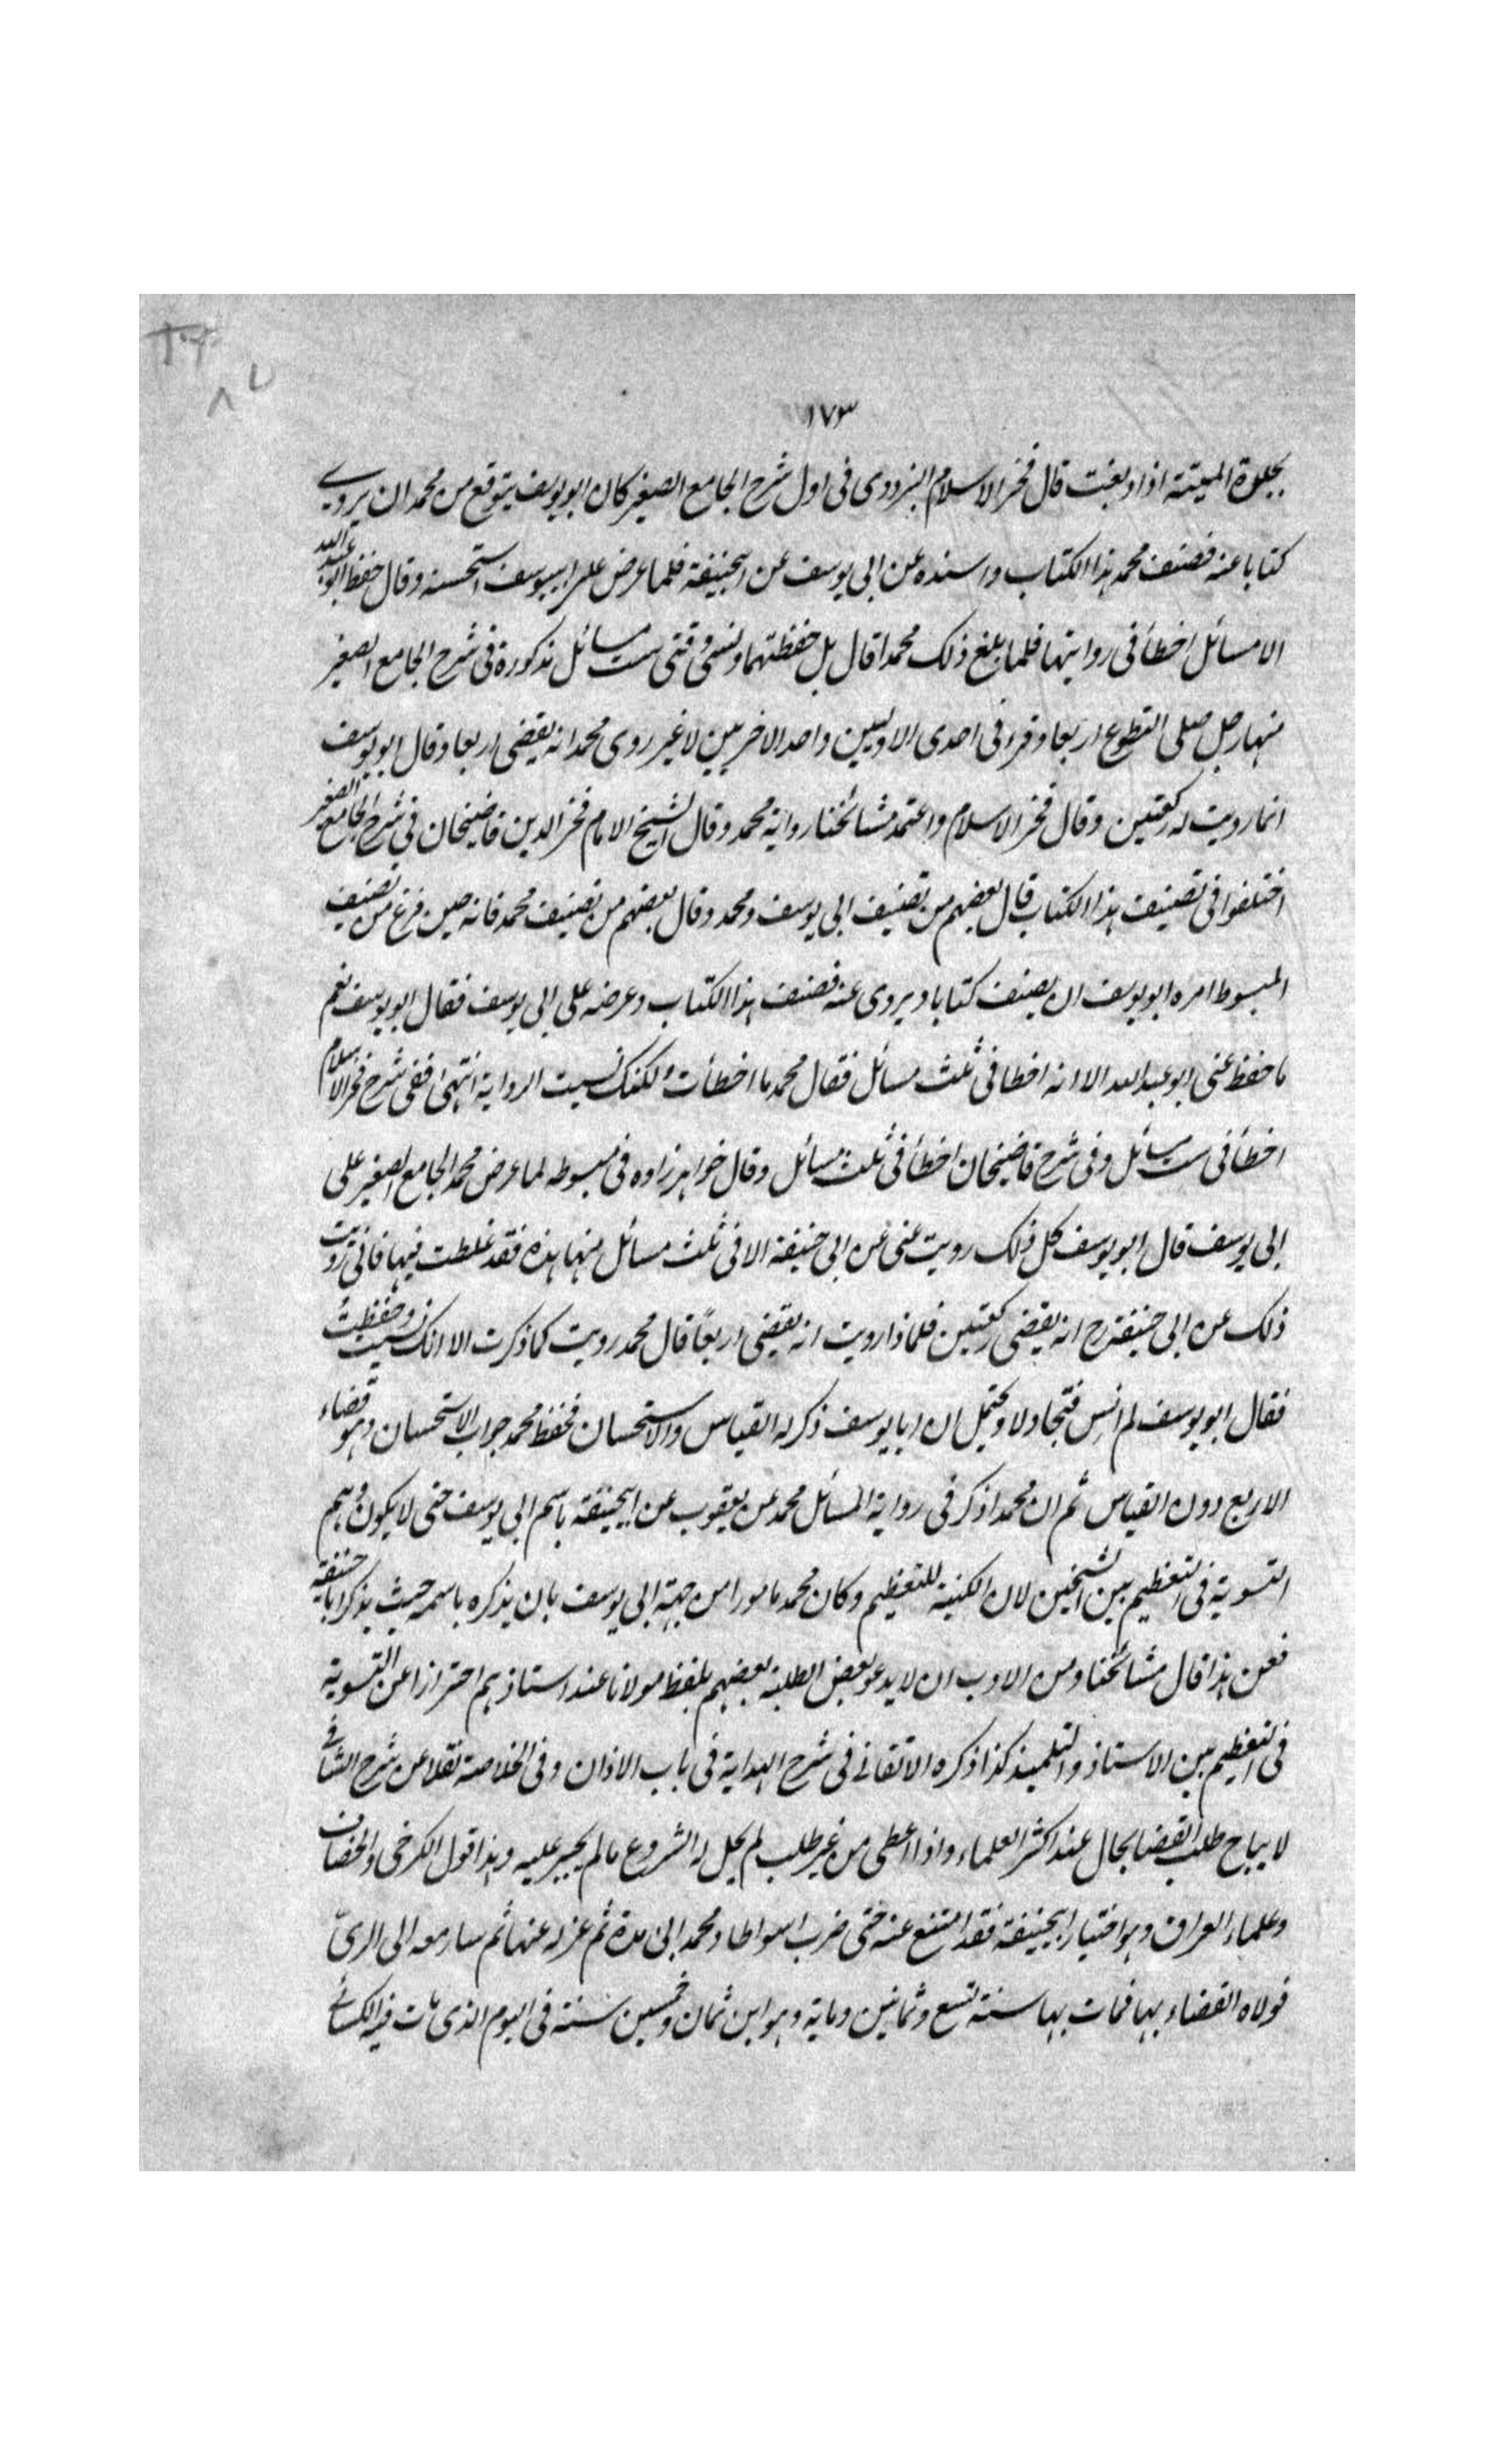 ١٧٣
بجلود الميتة اذا دبغت قال فخر الاسلام البزدوى فى اول شرح الجامع الصغير كان ابو يوسف يتوقع من محمد ان يروى
كتابا عنه فصنف محمد هذا الكتاب واسنده عن ابى يوسف عن ابيحنيفة فلما عرض على ابيوسف استحسنه وقال حفظ ابو عبد الله
الا مسائل اخطأ فى روايتها فلما بلغ ذلك محمدا قال بل حفظتها ونسى وقتى ست مسائل مذكورة فى شرح الجامع الصغير
منها رجل صلى التطوع اربعا وقرء فى احدى الاوليين واحد الاخريين لا غير روى محمد انه يقضى اربعا وقال ابو يوسف
انما رويت له ركعتين وقال فخر الاسلام واعتمد مشائخنا رواية محمد وقال الشيخ الامام فخر الدين قاضيخان فى شرح الجامع الصغير
اختلفوا فى تصنيف هذا الكتاب قال بعضهم من تصنيف ابى يوسف ومحمد وقال بعضهم من تصنيف محمد فانه حين فرغ من تصنيف
المبسوط امره ابو يوسف ان يصنف كتابا ويروى عنه فصنف هذا الكتاب وعرضه على ابى يوسف فقال ابو يوسف نعم
ما حفظ عنى ابو عبد الله الا انه اخطا فى ثلث مسائل فقال محمد ما اخطأت ولكنك نسيت الرواية انتهى ففى شرح فخر الاسلام
اخطأ فى ست مسائل وفى شرح قاضيخان اخطأ فى ثلث مسائل وقال خواهرزاده فى مبسوطه لما عرض محمد الجامع الصغير على
ابى يوسف قال ابو يوسف كل ذلك رويت عنى عن ابى حنيفة الا فى ثلث مسائل منها هذه فقد غلطت فيها فانى رويت
ذلك عن ابى حنيفة رح انه يقضى ركعتين فلماذا رويت انه يقضى اربعًا قال محمد رويت كما ذكرت الا انك نسيت وحفظتُ
فقال ابو يوسف لم انس فتجادلا ويحتمل ان ابا يوسف ذكر له القياس والاستحسان فحفظ محمد جواب الاستحسان وهو قضاء
الاربع دون القياس ثم ان محمدا ذكر فى رواية المسائل محمد عن يعقوب عن ابيحنيفة باسم ابى يوسف حتى لا يكون وهم
التسوية فى التعظيم بين الشيخين لان الكنية للتعظيم وكان محمد مامورا من جهة ابى يوسف بان يذكره باسمه حيث يذكر ابا حنيفة
فعن هذا قال مشائخنا ومن الادب ان لا يدعو بعض الطلبة بعضهم بلفظ مولانا عند استاذهم احترازا عن التسوية
فى التعظيم بين الاستاذ والتلميذ كذا ذكره الاتقانى فى شرح الهداية فى باب الاذان وفى الخلاصة نقلا عن شرح الشافى
لا يباح طلب القضا بحال عند اكثر العلماء واذا اعطى من غير طلب لم يحل له الشروع ما لم يجبر عليه وهذا قول الكرخى والخصاف
وعلماء العراق وهو اختيار ابيحنيفة فقد امتنع عنه حتى ضرب اسواطا ومحمد ابى مدة ثم عزله عنها ثم سار معه الى الرىّ
فولاه القضاء بها فمات بها سنة تسع وثمانين وماية وهو ابن ثمان وخمسين سنة فى اليوم الذى مات فيه الكسائى